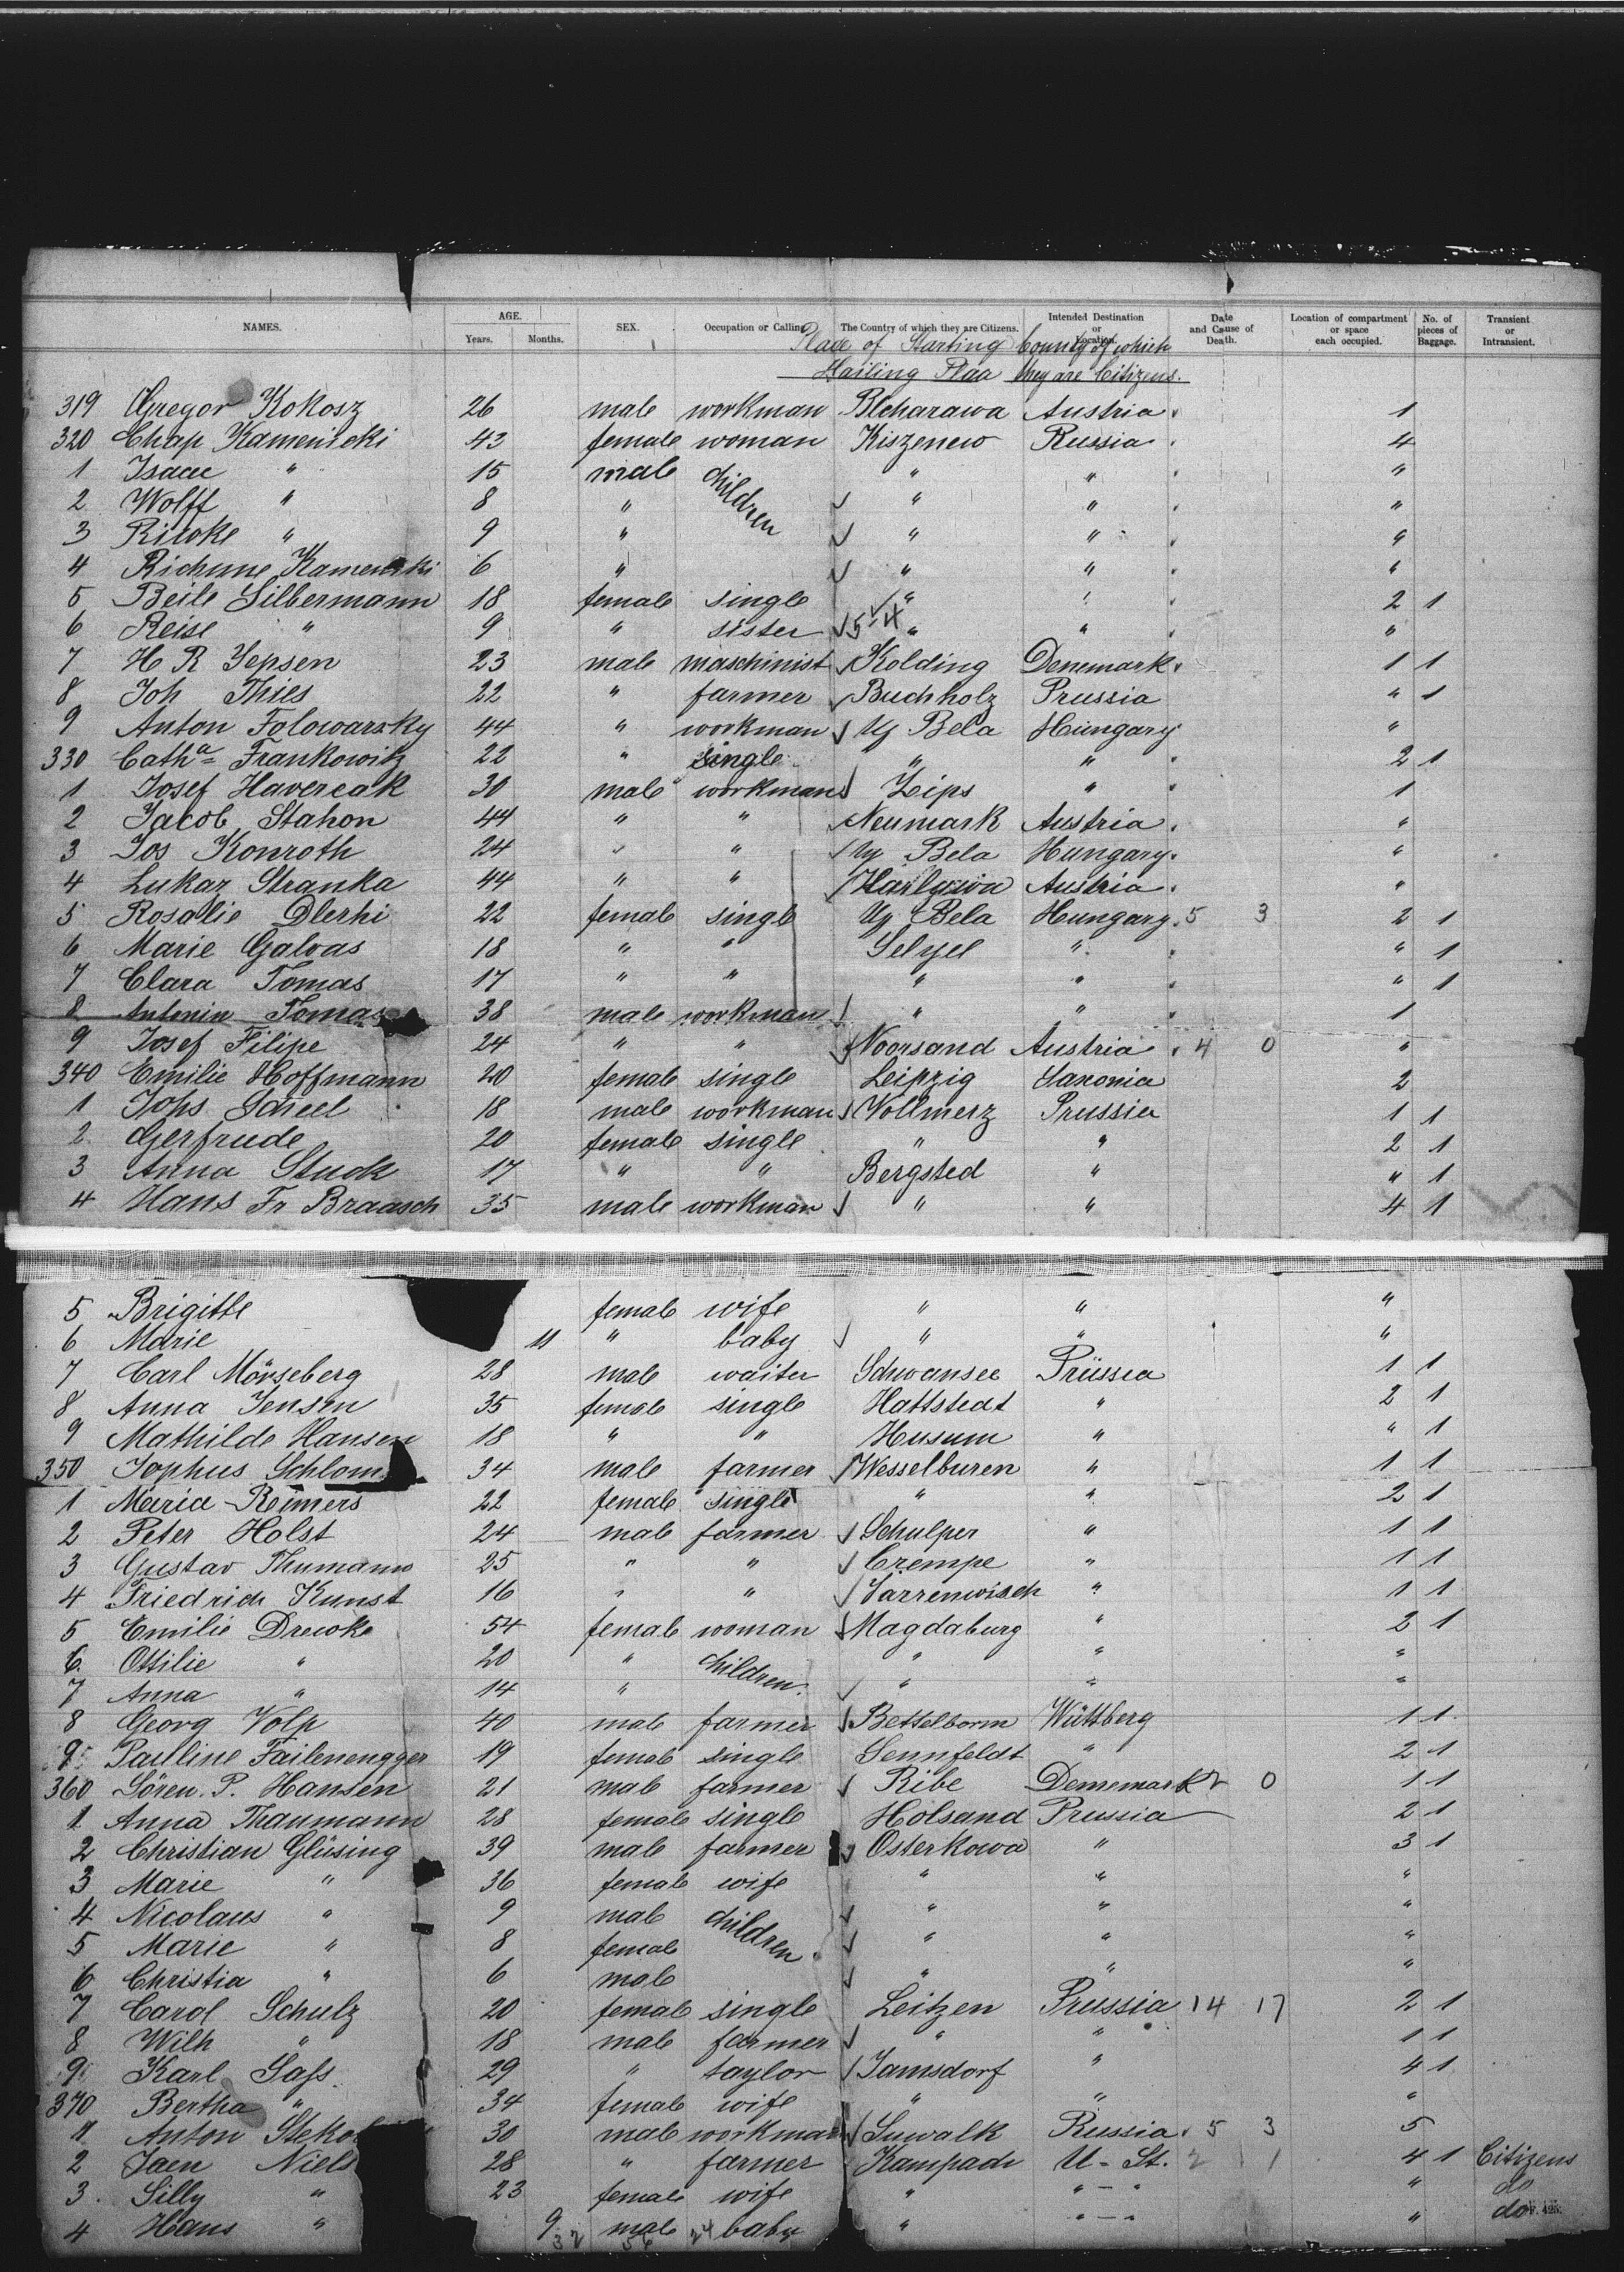 NAMES. AGE. Years. Months. SEX. Occupation or Calling. The Country of which they are Citizens. Intended Destination or Location. Date and Cause of Death. Location of compartment or space each occupied. No. of pieces of Baggage. Transient or Intransient.
Place of Starting County of which
Hailing Plaa they are Citizens.
319 Gregor Kokosz 26 male workman Austria 1
320 Chap Kamenicki 43 female woman Kiszenew Russia 4
1 Isaac " 15 male children " " "
2 Wolff " 8 " " " "
3 " 9 " " " "
4 Kamenski 6 " " " "
5 Beile Silbermann 18 female single " 2 1
6 Reise " 9 " sister 5-4 " " "
7 H R Jepsen 23 male maschinist Kolding Denemark 1 1
8 Joh Thies 22 " farmer Buchholz Prussia " 1
9 Anton Folowarsky 44 " workman Uj Bela Hungary "
330 Catha Frankowitz 22 " single " " 2 1
1 Josef Havercak 30 male workman Zips " 1
2 Jacob Stahon 44 " " Neumark Austria "
3 Jos Konroth 24 " " Uj Bela Hungary "
4 Lukaz Stranka 44 " " Austria "
5 Rosalie Dlerhi 22 female single Uj Bela Hungary 5 3 2 1
6 Marie Galvas 18 " " Selyel " " 1
7 Clara Tomas 17 " " " " " 1
8 Antonin Tomas 38 male workman " " 1
9 Josef Filipe 24 " " Noorsand Austria 4 0 "
340 Emilie Hoffmann 20 female single Leipzig Saxonia 2
1 Johs Scheel 18 male workman Vollmerz Prussia 1 1
2 Gertrude 20 female single " " 2 1
3 Anna Stuck 17 " " Bergsted " " 1
4 Hans Fr Braasch 35 male workman " " 4 1
5 Brigitte female wife " " "
6 Marie 11 " baby " " "
7 Carl Mörseberg 28 male waiter Schwansee Prüssia 1 1
8 Anna Jensen 35 female single Hattstedt " 2 1
9 Mathilde Hansen 18 " " Husum " " 1
350 Jophus Schlom 34 male farmer Wesselburen " 1 1
1 Maria Reimers 22 female single " " 2 1
2 Peter Holst 24 male farmer Schulper " 1 1
3 Gustav Thumann 25 " " Crempe " 1 1
4 Friedrich Kunst 16 " " Sarrenwisch " 1 1
5 Emilie Drewke 54 female woman Magdaburg " 2 1
6 Ottilie " 20 " children " " "
7 Anna " 14 " " " "
8 Georg Volp 40 male farmer Bettelborm Wüttberg 1 1
9 Pauline Failenengger 19 female single Sennfeldt " 2 1
360 Sören. P. Hansen 21 male farmer Ribe Denemark 2 0 1 1
1 Anna Thaumann 28 female single Holsand Prussia 2 1
2 Christian Glüsing 39 male farmer Osterkowa " 3 1
3 Marie " 36 female wife " " "
4 Nicolaus " 9 male children " " "
5 Marie " 8 female " " "
6 Christia " 6 male " " "
7 Carol Schulz 20 female single Leitzen Prussia 14 17 2 1
8 Wilh " 18 male farmer " " 1 1
9 Karl Sass 29 " taylor Jamsdorf " 4 1
370 Bertha " 34 female wife " " "
1 Anton Steko 30 male workman Suwalk Russia 5 3 5
2 Jaen Niels 28 " farmer Kampade U-St. 2 1 4 1 Citizens
3 Silly " 23 female wife " "-" " do
4 Hans " 9 male baby " "-" " do
32 56 24